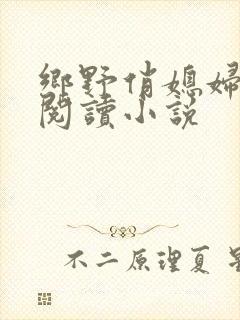 鄉野俏媳婦
閱讀小說
不二原理夏